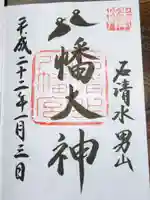 石清水 男山
八幡大神
平成二十一年一月三日